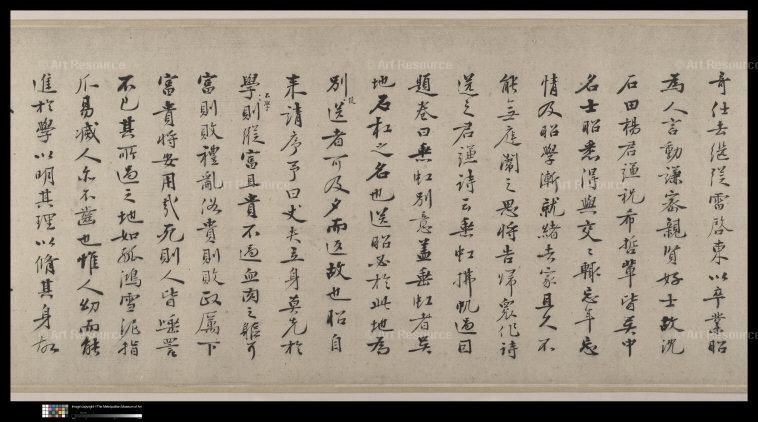 哥仕去继從雷啓東以卒業昭
為人言動謙審親賢好士故沈
石田楊君謙祝希哲輩皆吳中
名士昭悉得與交之輙忘年忘
情及昭學漸就緒去家且久不
能無庭闈之思將告歸衆作詩
送之君謙詩云垂虹拂帆過因
題卷曰垂虹別意蓋垂虹者吳
地石杠之名也送昭必於此地為
別送者可及夕而返故也昭自
来請序予曰丈夫立身莫先於
學不學則縱富且貴不過血肉之軀耳
富則敗禮亂俗貴則敗政厲下
富貴將安用哉死則人皆唾詈
不已其所過之地如孤鴻雪泥指
爪易滅人亦不齒也惟人幼而能
進於學以明其理以脩其身故
© Art Resource
Image copyright ©The Metropolitan Museum of Art